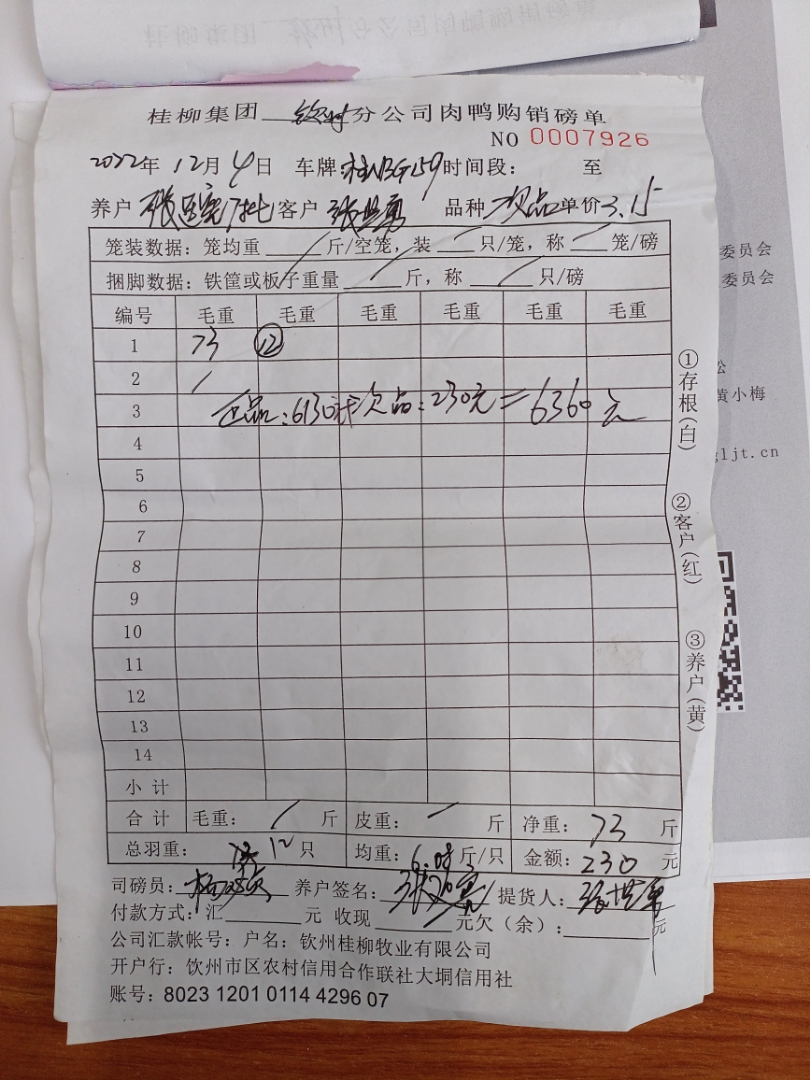 桂柳集团 钦州 分公司肉鸭购销磅单
NO 0007926
2022年 12月 4日 车牌 时间段： 至
养户 客户 品种 次品 单价 3.15
笼装数据：笼均重 / 斤/空笼，装 / 只/笼，称 / 笼/磅
捆脚数据：铁筐或板子重量 / 斤，称 / 只/磅
编号 毛重 毛重 毛重 毛重 毛重 毛重
1 73 ⑫
2 /
3 正品：6130元 次品：230元 = 6360元
4
5
6
7
8
9
10
11
12
13
14
小 计
合 计 毛重： / 斤 皮重： 一 斤 净重： 73 斤
总羽重： 12 只 均重： 6.08 斤/只 金额：230 元
司磅员： 养户签名： 提货人：
付款方式：汇 元 收现 元欠（余）： 元
公司汇款帐号：户名：钦州桂柳牧业有限公司
开户行：钦州市区农村信用合作联社大垌信用社
账号：8023 1201 0114 4296 07
①存根(白)
②客户(红)
③养户(黄)
委员会
委员会
黄小梅
gljt.cn